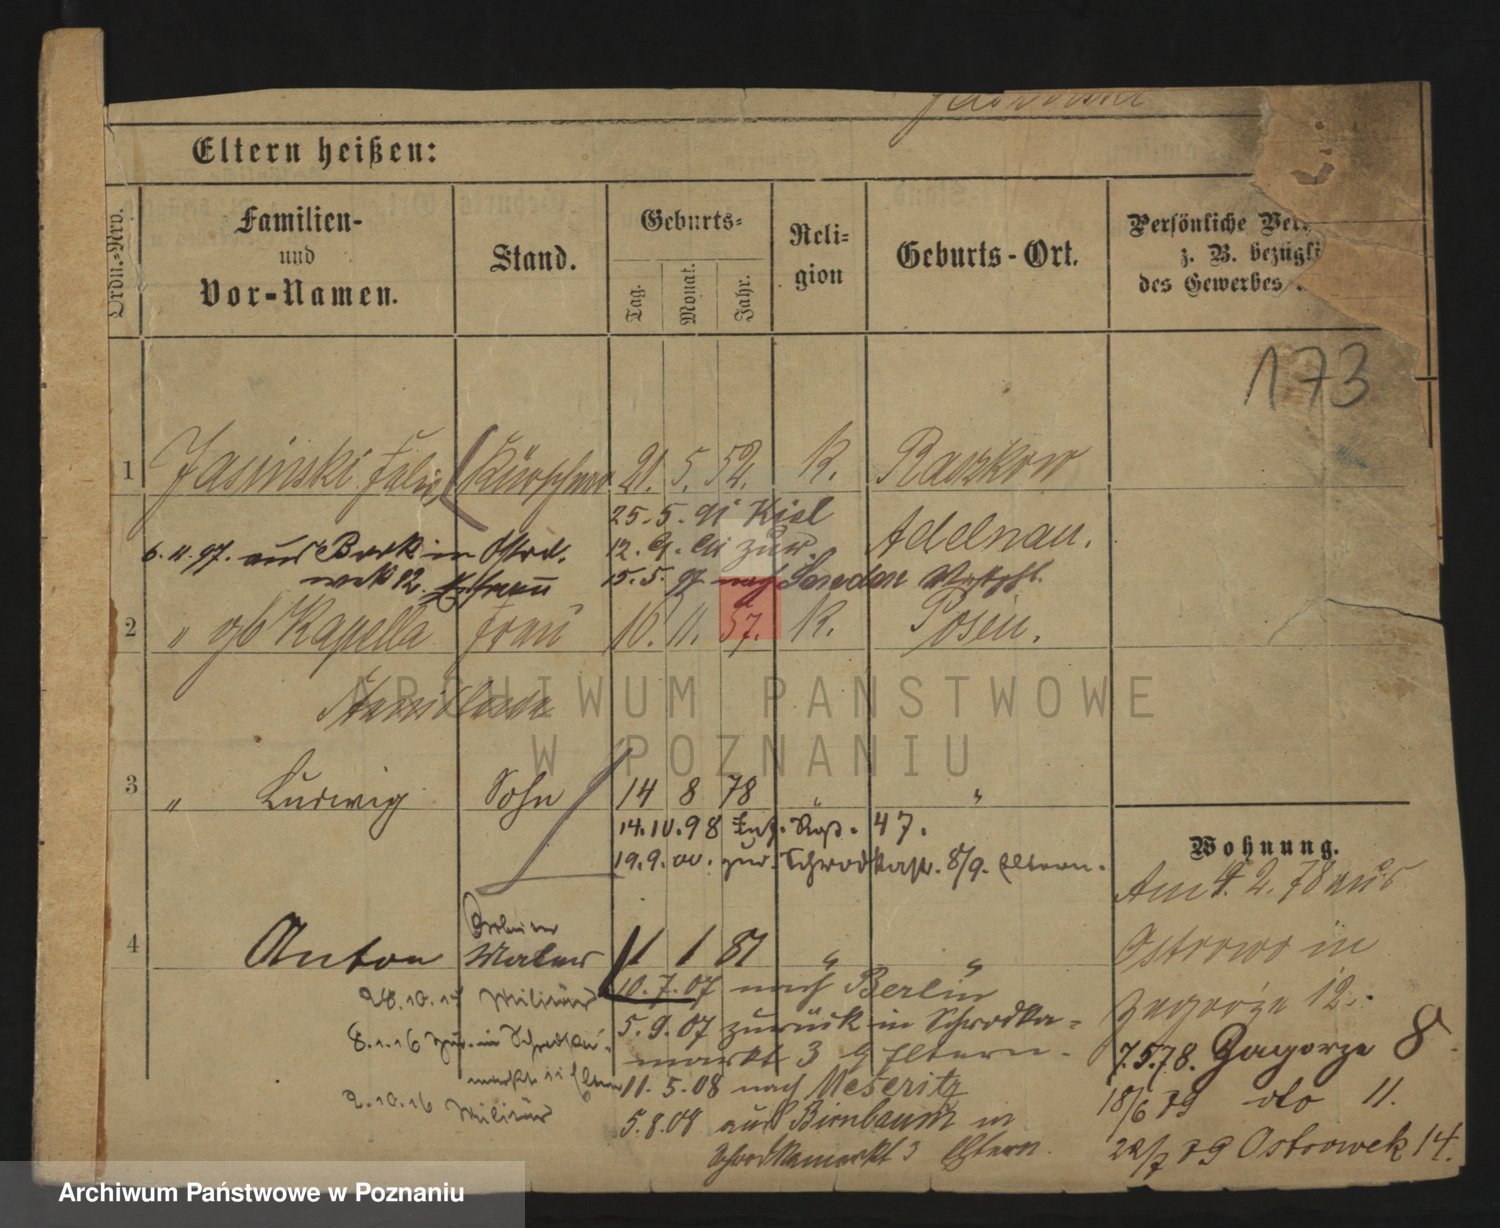 Eltern heißen:
Ordn.-Nro.
Familien-
und
Vor-Namen.
Stand.
Geburts-
Tag.
Monat.
Jahr.
Reli-
gion
Geburts-Ort.
Persönliche
z. B.
des Gewerbes
173
1 Jasinski Felix Kürschner 21. 5. 52. K. Raszkow
25. 5. Kiel
Adelnau.
6. 11. 97. aus Berk in Ostro-
wek 12. 12. 9. zur.
15. 5. 97 nach
2 " gb Kapella Frau 10. 11. 57. K. Posen.
Stanislawa
ARCHIWUM PANSTWOWE
W POZNANIU
3 " Ludwig Sohn 14 8 78 " "
14. 10. 98 Inf. Rgt. 47.
19. 9. 00. zur. Schrodkastr. 8/9. Eltern.
4 Anton Maler 1 1 81 " "
10. 7. 07 nach Berlin
28. 10. 14 Militär
5. 9. 07 zurück in Schrodka-
markt 3 b Eltern.
8. 1. 16 zur. in Schrodka-
markt Eltern
11. 5. 08 nach Meseritz
2. 10. 16 Militär
5. 8. 08 aus Birnbaum in
Schrodkamarkt 3 Eltern.
Wohnung.
Am 4. 2. 78 aus
Ostrowo in
Zagorze 12.
7. 5. 78. Zagorze 8.
18/6 79 do 11.
22/7 79 Ostrowek 14.
Archiwum Państwowe w Poznaniu